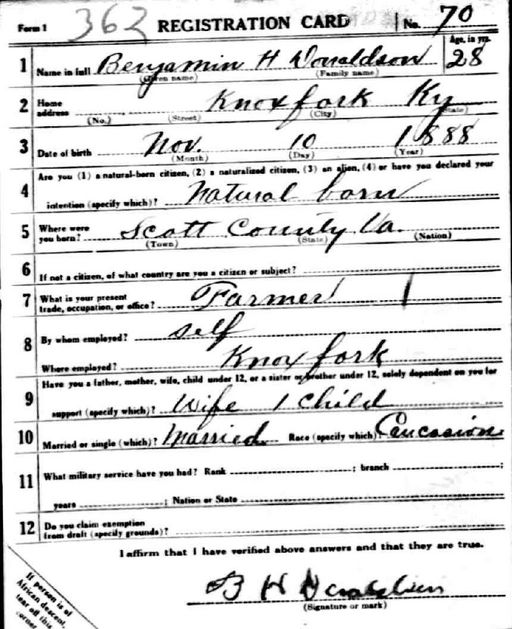 Form 1 362 REGISTRATION CARD No. 70
1 Name in full Benjamin H Donaldson Age, in yrs. 28
(Given name) (Family name)
2 Home address Knoxfork Ky
(No.) (Street) (City) (State)
3 Date of birth Nov. 10 1888
(Month) (Day) (Year)
4 Are you (1) a natural-born citizen, (2) a naturalized citizen, (3) an alien, (4) or have you declared your
intention (specify which)? Natural born
5 Where were you born? Scott County Va.
(Town) (State) (Nation)
6 If not a citizen, of what country are you a citizen or subject?
7 What is your present trade, occupation, or office? Farmer
8 By whom employed? self
Where employed? Knox fork
9 Have you a father, mother, wife, child under 12, or a sister or brother under 12, solely dependent on you for
support (specify which)? Wife 1 Child
10 Married or single (which)? Married Race (specify which)? Caucasion
11 What military service have you had? Rank ; branch ;
years ; Nation or State
12 Do you claim exemption from draft (specify grounds)?
I affirm that I have verified above answers and that they are true.
B H Donaldson
(Signature or mark)
If person is of
African descent,
tear off this
corner